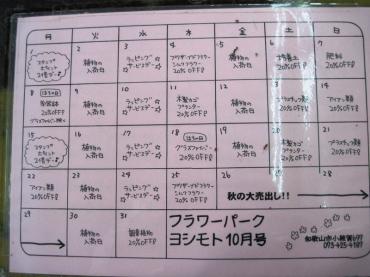 月 火 水 木 金 土 日
1
スタンプ
2
植物の
入荷日
3
ラッピング
サービスデー
4
プリザーブドフラワー
シルクフラワー
20%OFF
5
植物の
入荷日
6
培養土
20%OFF
7
肥料
20%OFF
8
はちの日
20%OFF
9
植物の
入荷日
10
ラッピング
サービスデー
11
木製カゴ
プランター
20%OFF
12
植物の
入荷日
13
プラスチック鉢
20%OFF
14
アイアン雑貨
20%OFF
15
スタンプ
16
植物の
入荷日
17
ラッピング
サービスデー
18
はちの日
20%OFF
19
植物の
入荷日
20
木製カゴ
プランター
20%OFF
21
プラスチック鉢
20%OFF
22
アイアン雑貨
20%OFF
23
植物の
入荷日
24
ラッピング
サービスデー
25
プリザーブドフラワー
シルクフラワー
20%OFF
26 27 28
秋の大売出し!!
29
30
植物の
入荷日
31
観葉植物
20%OFF
フラワーパーク
ヨシモト10月号
和歌山市小雑賀697
073-425-4187